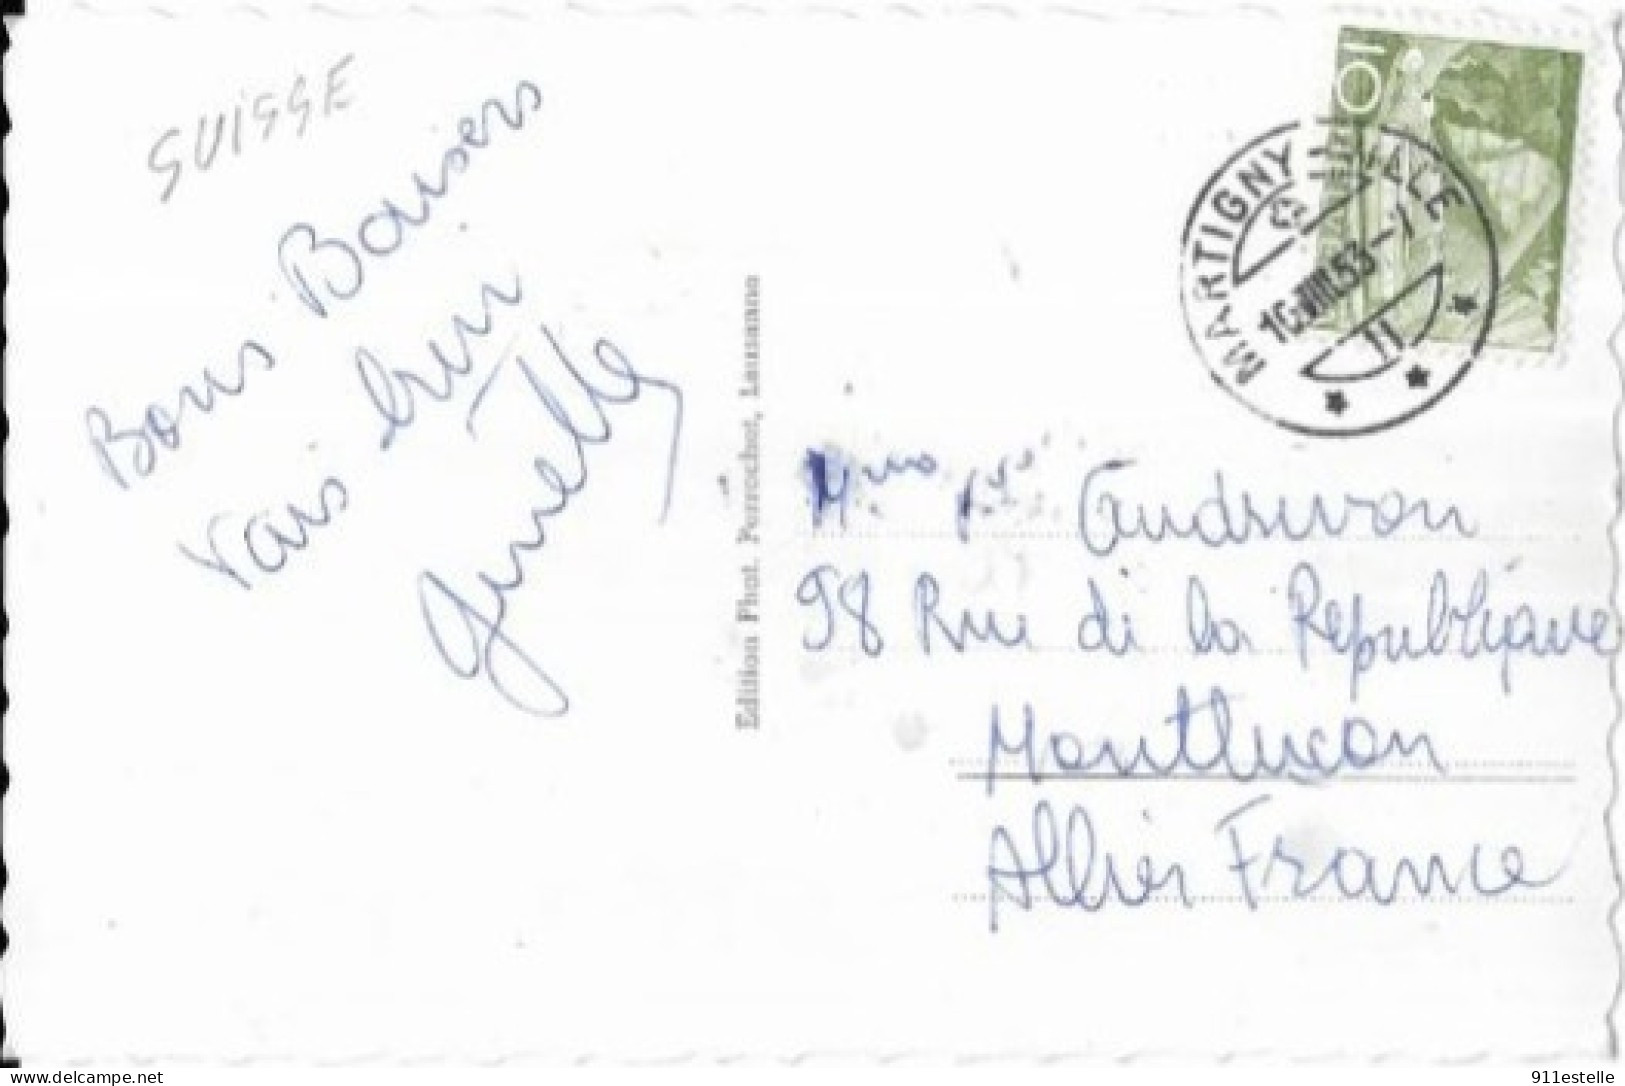 SUISSE
Bons Baisers
vais bien
Ginette
Edition Phot. Perrochet, Lausanne
10
MARTIGNY-VILLE
10.VIII.53-7
Mme
98 Rue de la Republique
Montlucon
Allier France
911estelle